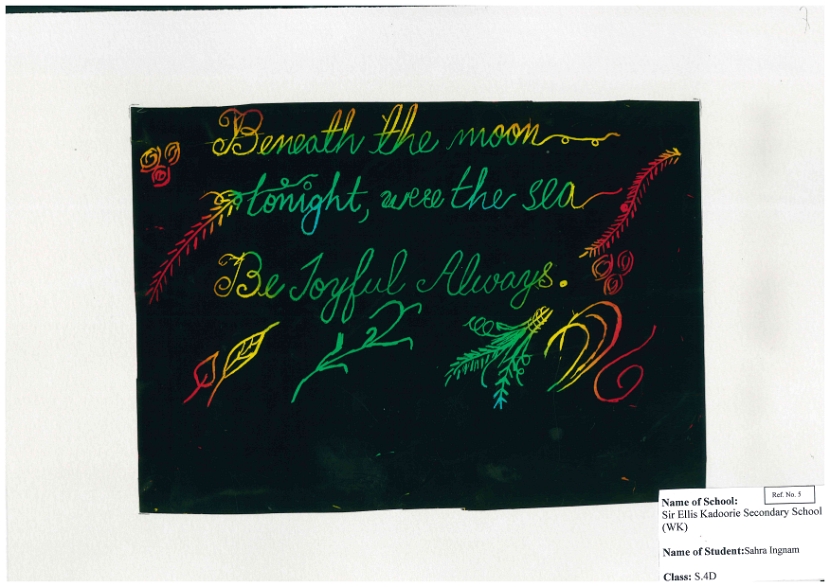 Beneath the moon
tonight, were the sea
Be Joyful Always.
Ref. No. 5
Name of School:
Sir Ellis Kadoorie Secondary School
(WK)
Name of Student:Sahra Ingnam
Class: S.4D